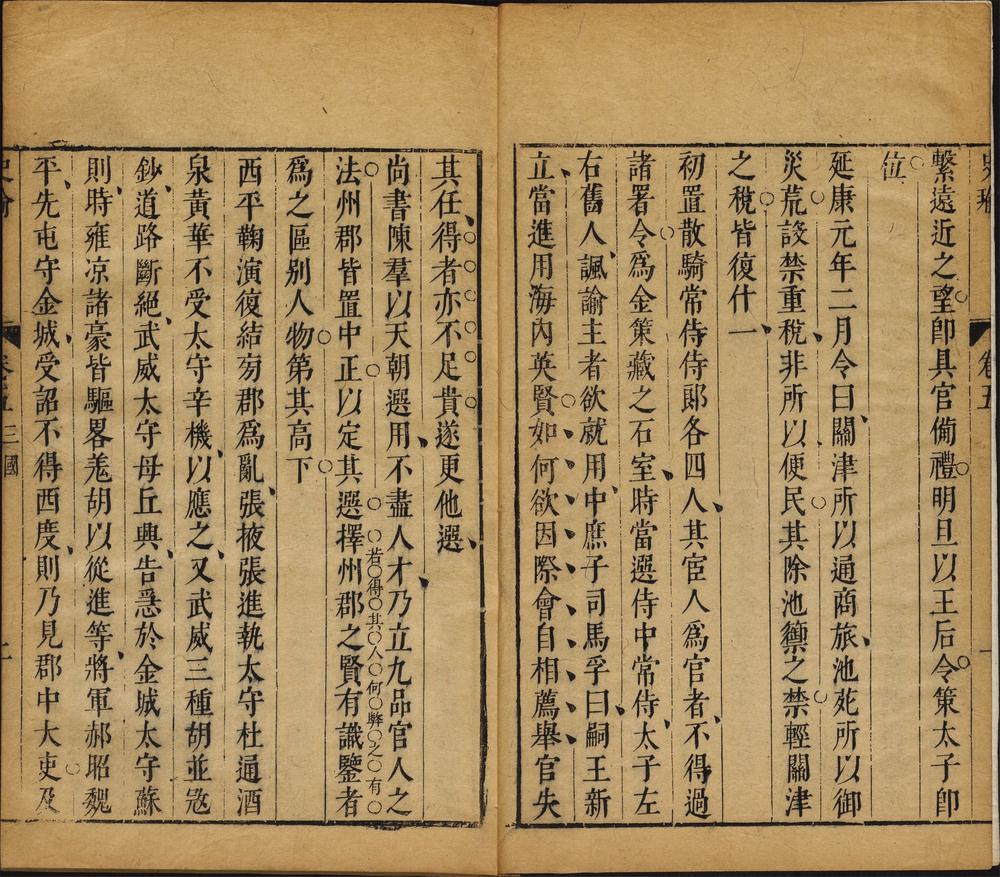 繫遠近之望卽具官備禮明旦以王后令策太子卽
位
延康元年二月令曰關津所以通商旅池苑所以御
災荒設禁重稅非所以便民其除池籞之禁輕關津
之稅皆復什一
初置散騎常侍侍郎各四人其宦人爲官者不得過
諸署令爲金策藏之石室時當選侍中常侍太子左
右舊人諷諭主者欲就用中庶子司馬孚曰嗣王新
立當進用海內英賢如何欲因際會自相薦舉官失
卷五
其任得者亦不足貴遂更他選
尚書陳羣以天朝選用不盡人才乃立九品官人之
若得其人何弊之有
法州郡皆置中正以定其選擇州郡之賢有識鑒者
爲之區别人物第其高下
西平鞠演復結旁郡爲亂張掖張進執太守杜通酒
泉黃華不受太守辛機以應之又武威三種胡並寇
鈔道路斷絕武威太守毋丘興告急於金城太守蘇
則時雍凉諸豪皆驅畧羗胡以從進等將軍郝昭魏
平先屯守金城受詔不得西度則乃見郡中大吏及
三國